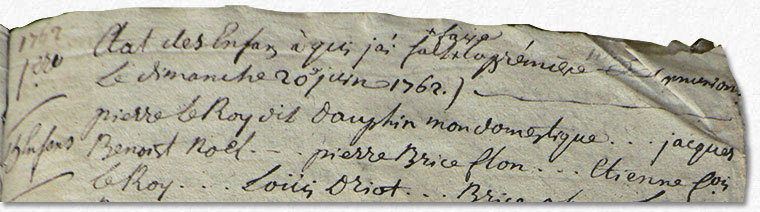 1762
1ere
Etat des Enfans à qui j'ai faire la première Communion
Le dimanche 20 juin 1762.)
pierre LeRoy dit Dauphin mon domestique . . . jacques
Enfans Benoist Noël --- pierre Brice flon . . . Etienne
LeRoy . . . Louis Driot . . . Brice